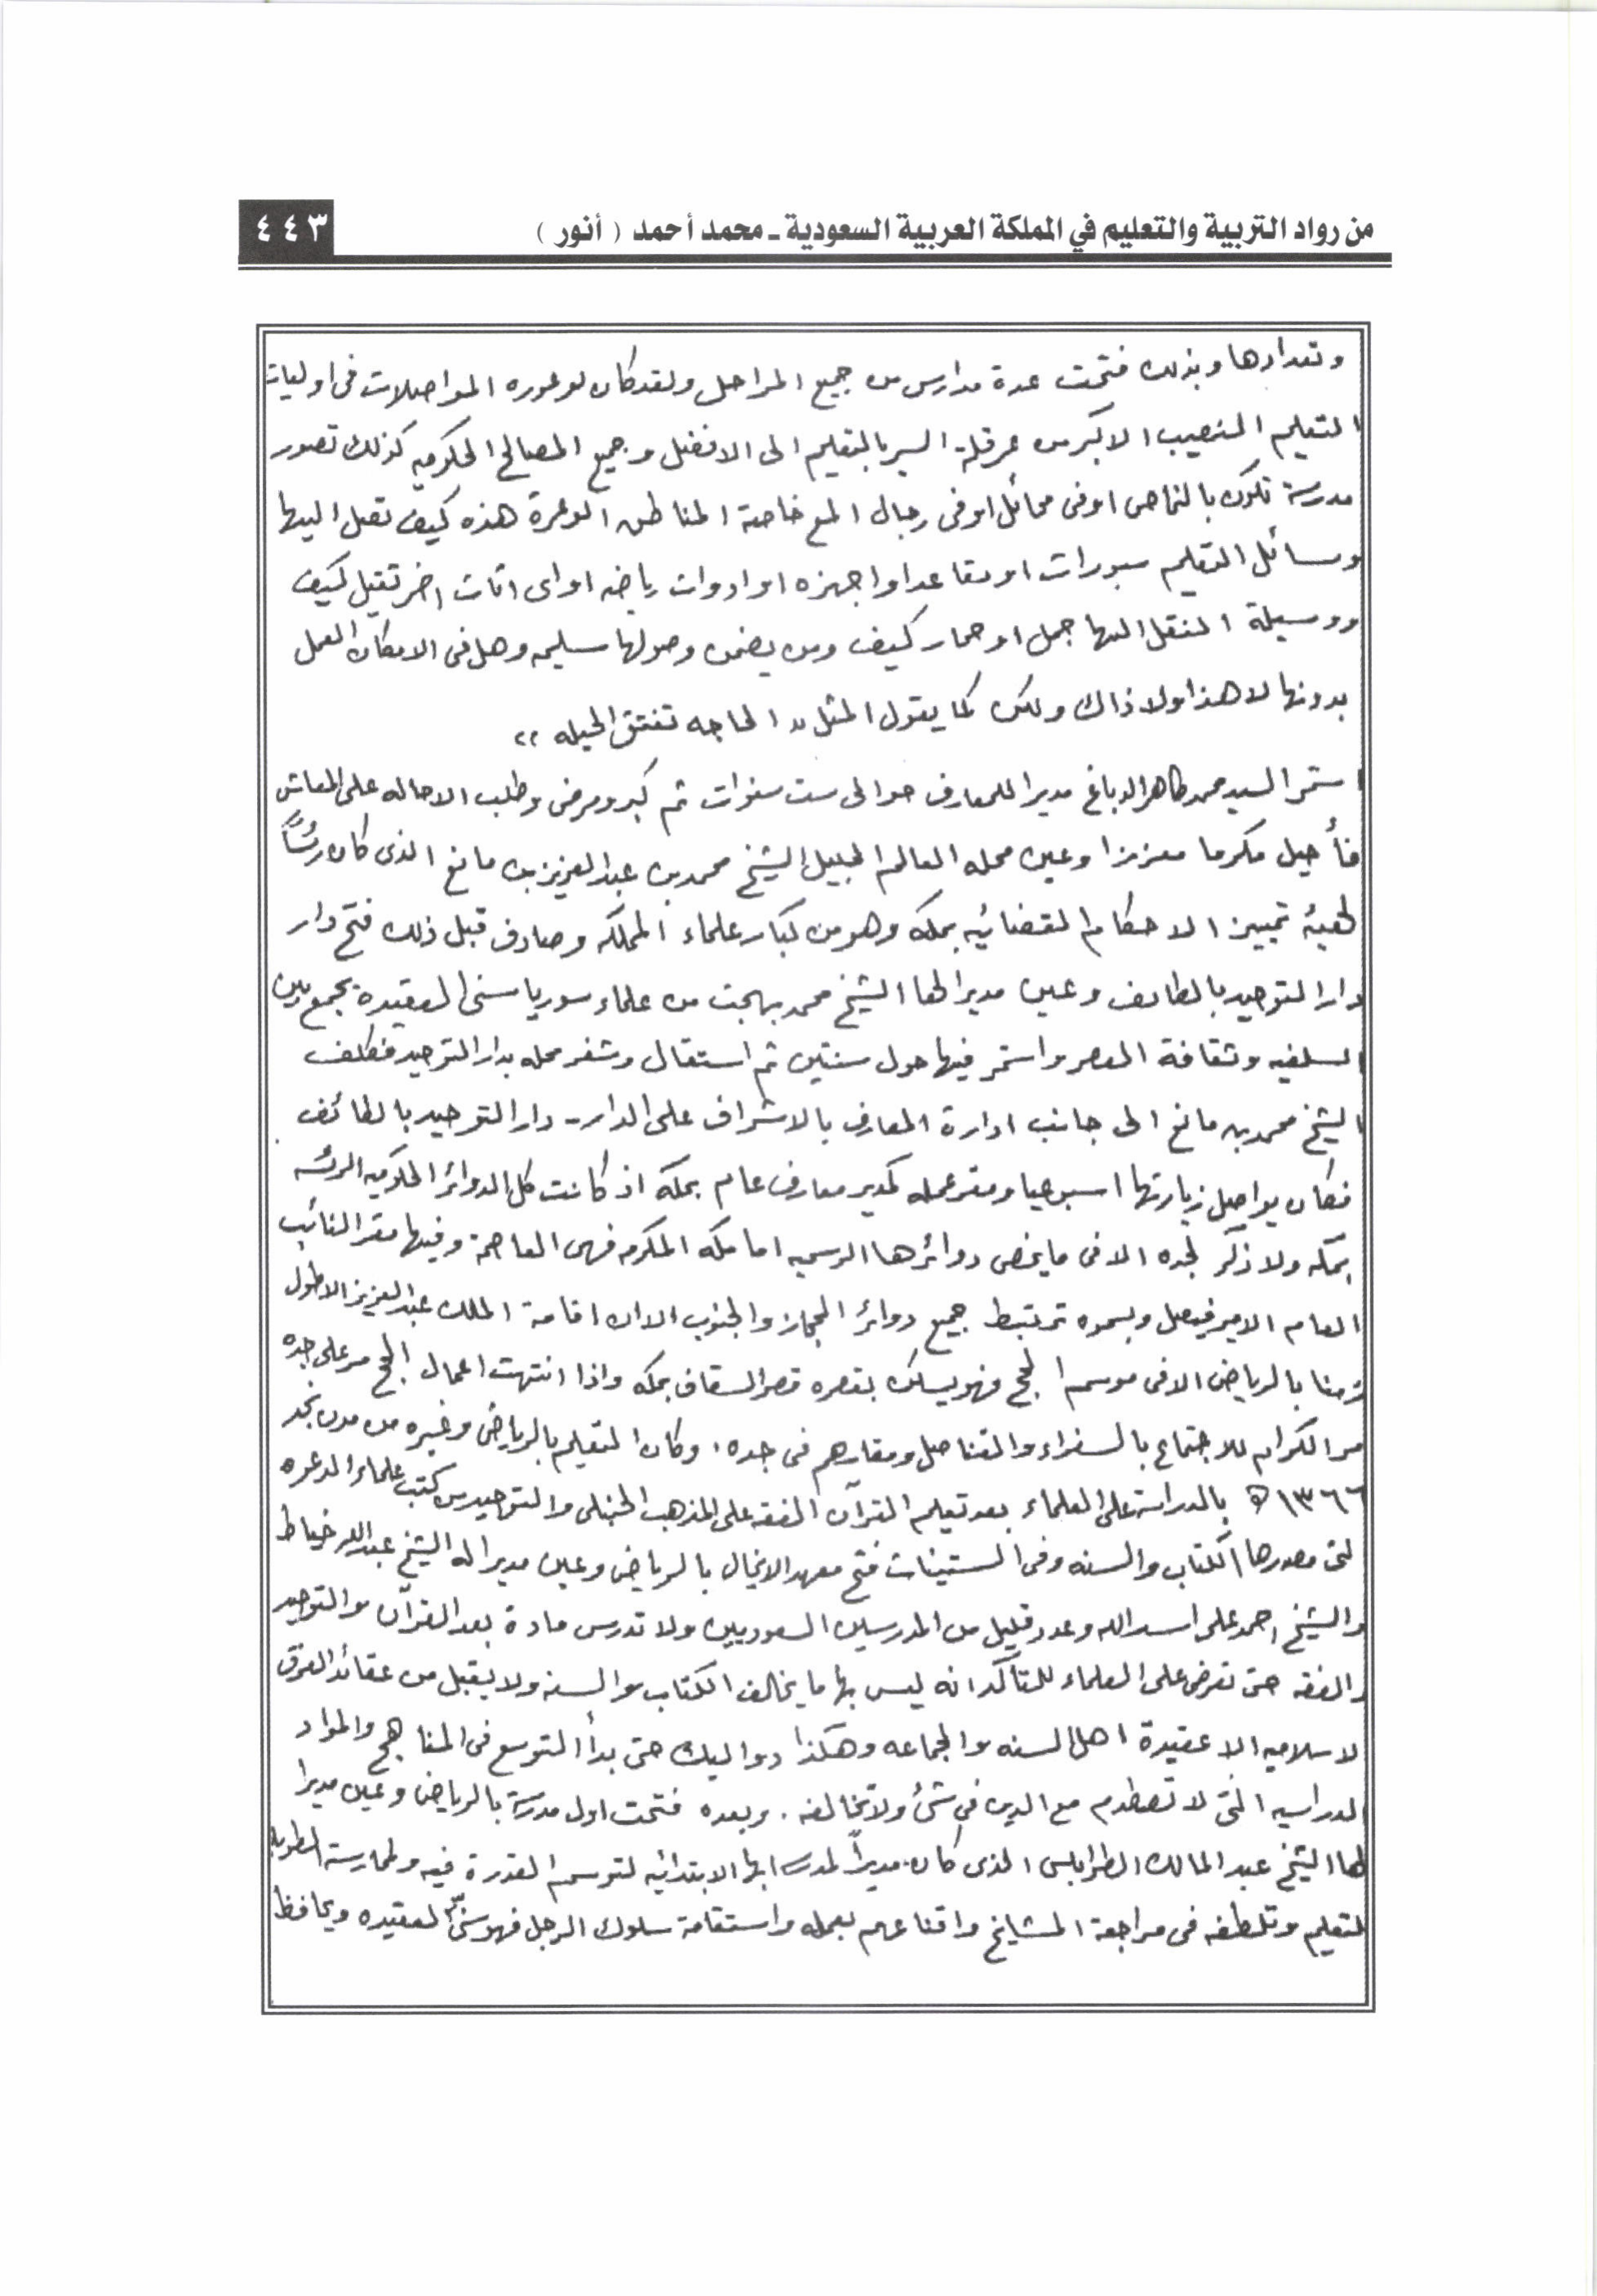 من رواد التربية والتعليم في المملكة العربية السعودية ـ محمد أحمد ( أنور )
٤٤٣
وتعدادها وبذلك فتحت عدة مدارس من جميع المراحل ولقد كان لوعوره المواصلات فى اوليات
التعليم النصيب الاكبر من عرقلة السير بالتعليم الى الافضل وجميع المصالح الحكوميه كذلك تصور
مدرسة تكون بالنماص او فى محائل او فى رجال المع خاصة المناطق الوعرة هذه كيف تصل اليها
وسائل التعليم سبورات او مقاعد او اجهزه او ادوات رياضه او اى اثاث اخر ثقيل كيف
ووسيلة النقل اليها جمل او حمار كيف ومن يضمن وصولها سليمه وهل فى الامكان العمل
بدونها لا هذا ولا ذاك ولكن كما يقول المثل " الحاجه تفتق الحيله "
استمر السيد محمد طاهر الدباغ مديرا للمعارف حوالى ست سنوات ثم كبر ومرض وطلب الاحاله على المعاش
فأحيل مكرما معززا وعين محله العالم الجليل الشيخ محمد بن عبد العزيز بن مانع الذى كان رئسًا
لهيئة تمييز الاحكام القضائيه بمكه وهو من كبار علماء المملكه وصادف قبل ذلك فتح دار
دار التوحيد بالطائف وعين مديرا لها الشيخ محمد بهجت من علماء سوريا سنى العقيدة يجمع بين
السلفيه وثقافة العصر واستمر فيها حول سنتين ثم استقال وشغر محله بدار التوحيد فكلف
الشيخ محمد بن مانع الى جانب ادارة المعارف بالاشراف على الدار ـ دار التوحيد بالطائف
فكان يواصل زيارتها اسبوعيا ومقر عمله كمدير معارف عام بمكه اذ كانت كل الدوائر الحكوميه الرئسه
بمكه ولا ذكر لجده الا فى ما يخص دوائرها الرسميه اما مكه المكرمه فهى العاصمة وفيها مقر النائب
العام الامير فيصل وبسموه ترتبط جميع دوائر الحجاز والجنوب الا ان اقامة الملك عبد العزيز الاطول
زمنا بالرياض الا فى موسم الحج فهو يسكن بقصره قصر السقاف بمكه واذا انتهت اعمال الحج مر على جده
مر الكرام للاجتماع بالسفراء والقناصل ومقارهم فى جده ، وكان التعليم بالرياض وغيره من مدن نجد
١٣٦٦ ه بالدراسة على العلماء بعد تعليم القرآن الفقه على المذهب الحنبلى والتوحيد من كتب علماء الدعوه
لتى مصدرها الكتاب والسنه وفى الستينات فتح معهد الانجال بالرياض وعين مديرا له الشيخ عبد الله خياط
والشيخ احمد على اسد الله وعدد قليل من المدرسين السعوديين ولا تدرس مادة بعد القرآن والتوحيد
والفقه حتى تعرض على العلماء للتأكد انه ليس بها ما يخالف الكتاب والسنه ولا يقبل من عقائد الفرق
لاسلاميه الا عقيدة اهل السنه والجماعه وهكذا دواليك حتى بدأ التوسع فى المناهج والمواد
لدراسيه التى لا تصطدم مع الدين فى شئ ولا تخالفه . وبعده فتحت اول مدرسة بالرياض وعين مديرا
لها الشيخ عبد المالك الطرابلسى الذى كان مديراً لمدرسة ابها الابتدائيه لتوسم القدرة فيه ولممارسته الطويله
لتعليم وتلطفه فى مراجعة المشايخ واقناعهم بعمله واستقامة سلوك الرجل فهو سنىّ العقيده ويحافظ